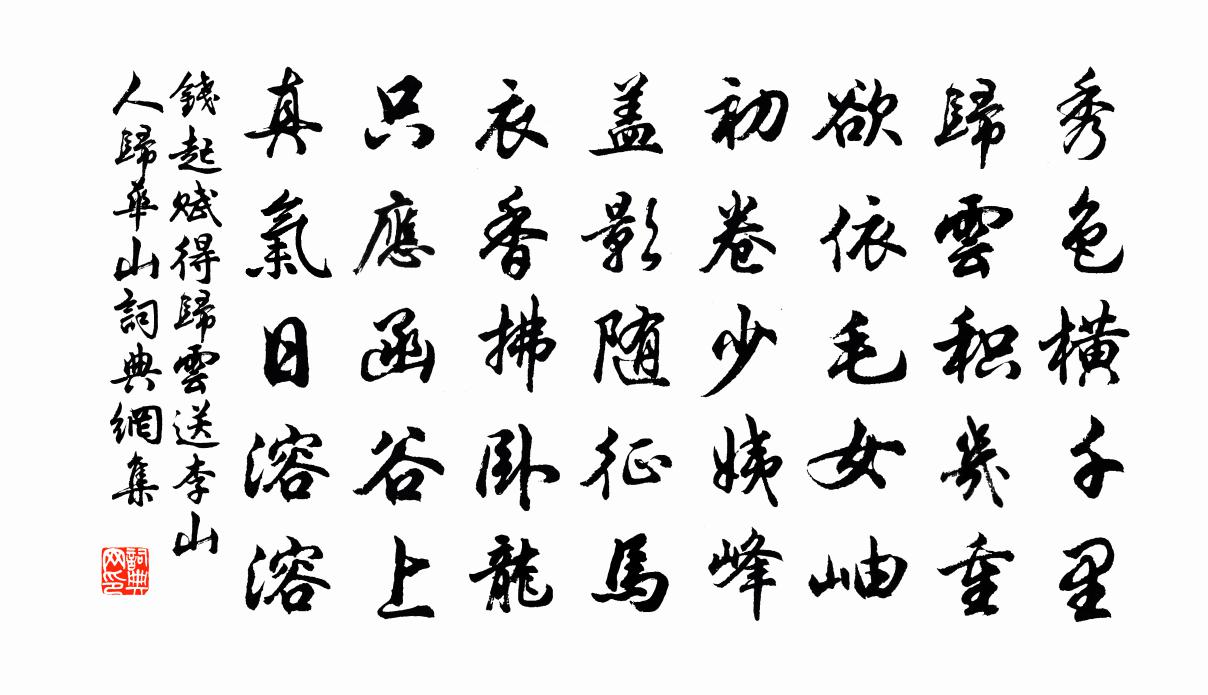 秀色橫千里
歸雲积幾重
欲依毛女岫
初卷少姨峰
盖影随征馬
衣香拂卧龍
只應函谷上
真氣日溶溶
錢起賦得歸雲送李山
人歸華山詞典網集
詞典网印